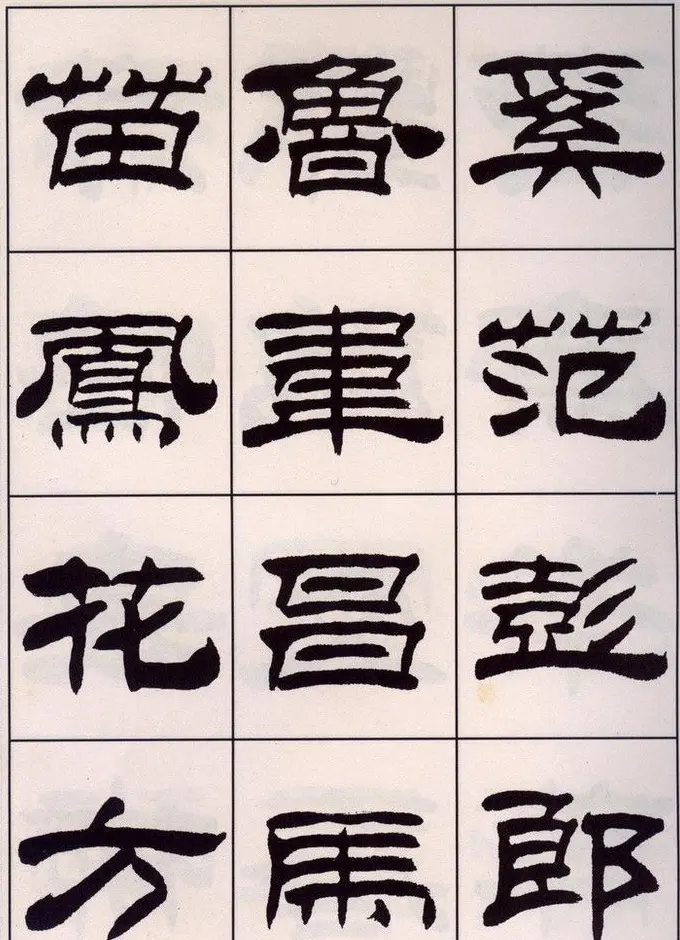 奚范彭郎
魯韋昌馬
苗鳳花方